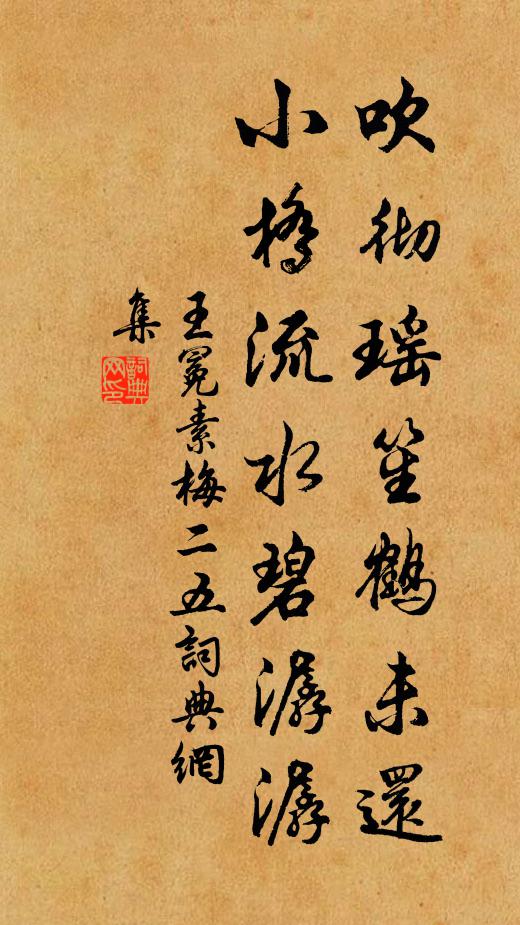 吹彻瑶笙鹤未還
小橋流水碧潺潺
王冕素梅二五詞典網
集
詞典
网印